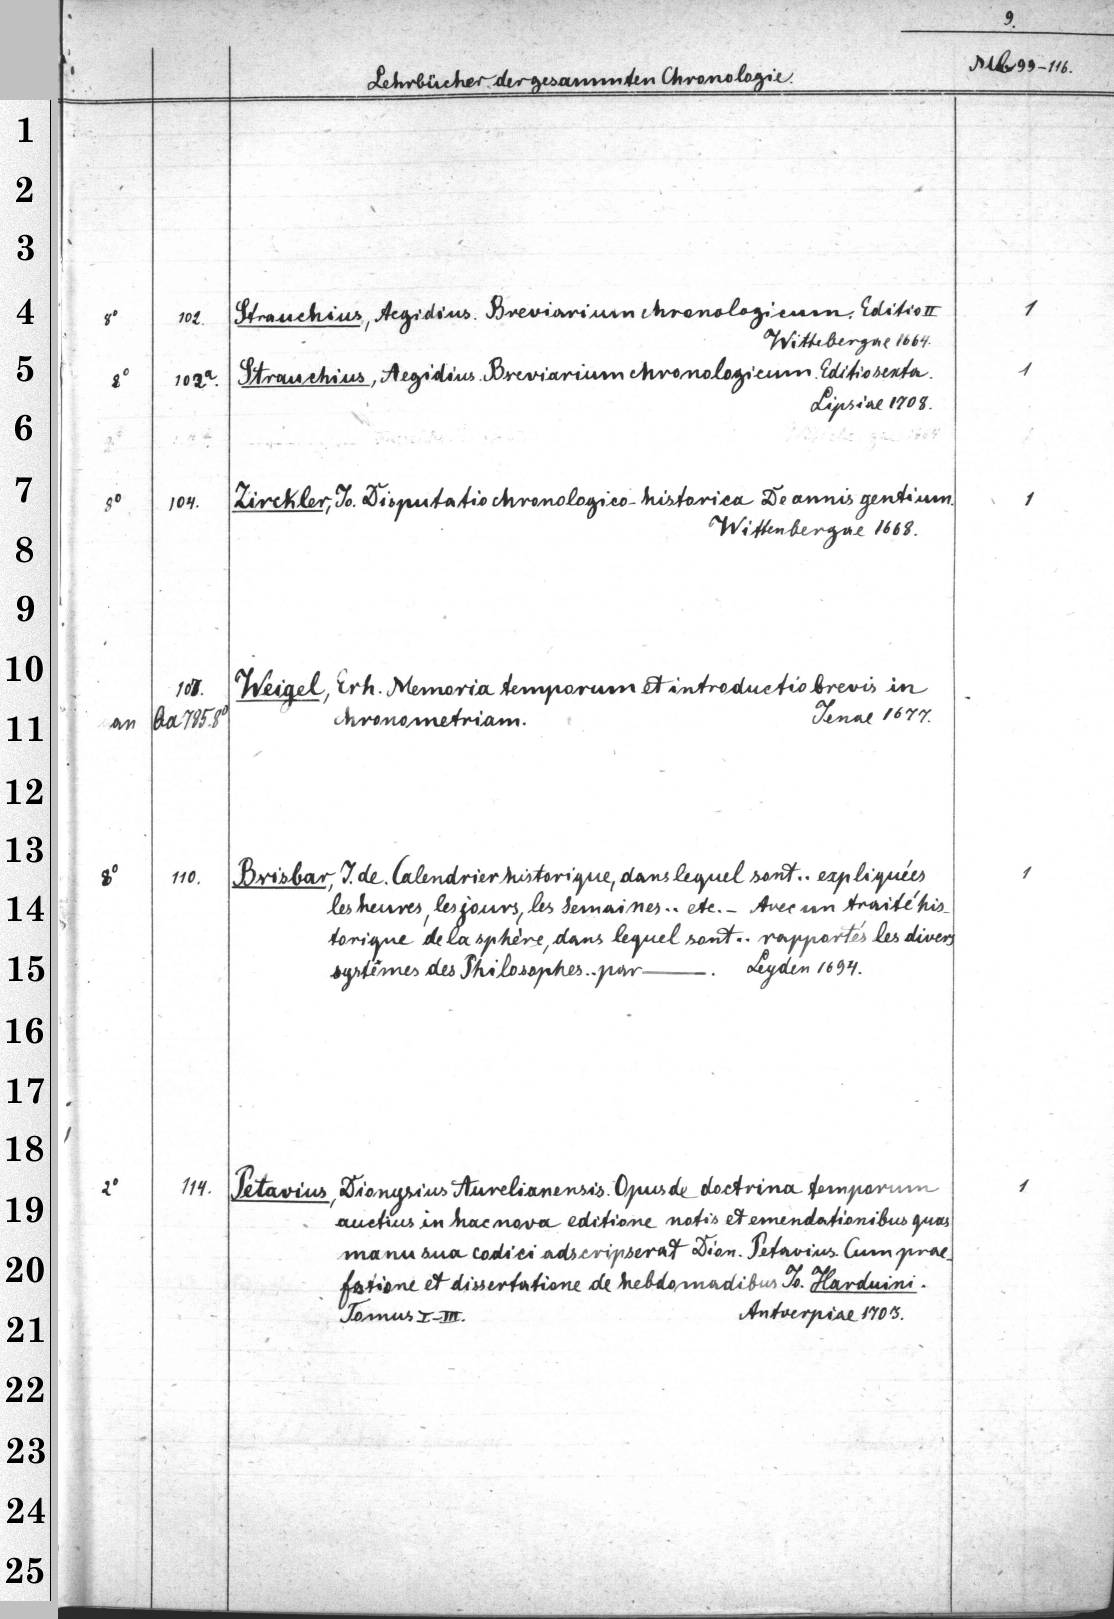 9.
Lehrbücher der gesammten Chronologie. Mb 99-116.
1
2
3
4 8° 102. Strauchius, Aegidius. Breviarium chronologicum. Editio II 1
Wittebergae 1664.
5 8° 102a. Strauchius, Aegidius. Breviarium chronologicum. Editio sexta. 1
Lipsiae 1708.
6
7 8° 104. Zirckler, Jo. Disputatio chronologico-historica De annis gentium. 1
Wittenbergae 1668.
8
9
10 Weigel, Erh. Memoria temporum et introductio brevis in
11 an Aa 785.8° chronometriam. Jenae 1677.
12
13 8° 110. Brisbar, J. de. Calendrier historique, dans lequel sont.. expliquées 1
14 les heures, les jours, les semaines.. etc. - Avec un traité his-
torique de la sphère, dans lequel sont.. rapportés les divers
15 systêmes des Philosophes.. par ——. Leyden 1694.
16
17
18
2° 114. Petavius, Dionysius Aurelianensis. Opus de doctrina temporum 1
19 auctius in hac nova editione notis et emendationibus quas
manu sua codici adscripserat Dion. Petavius. Cum prae-
20 fatione et dissertatione de hebdomadibus Jo. Harduini.
21 Tomus I-III. Antverpiae 1703.
22
23
24
25